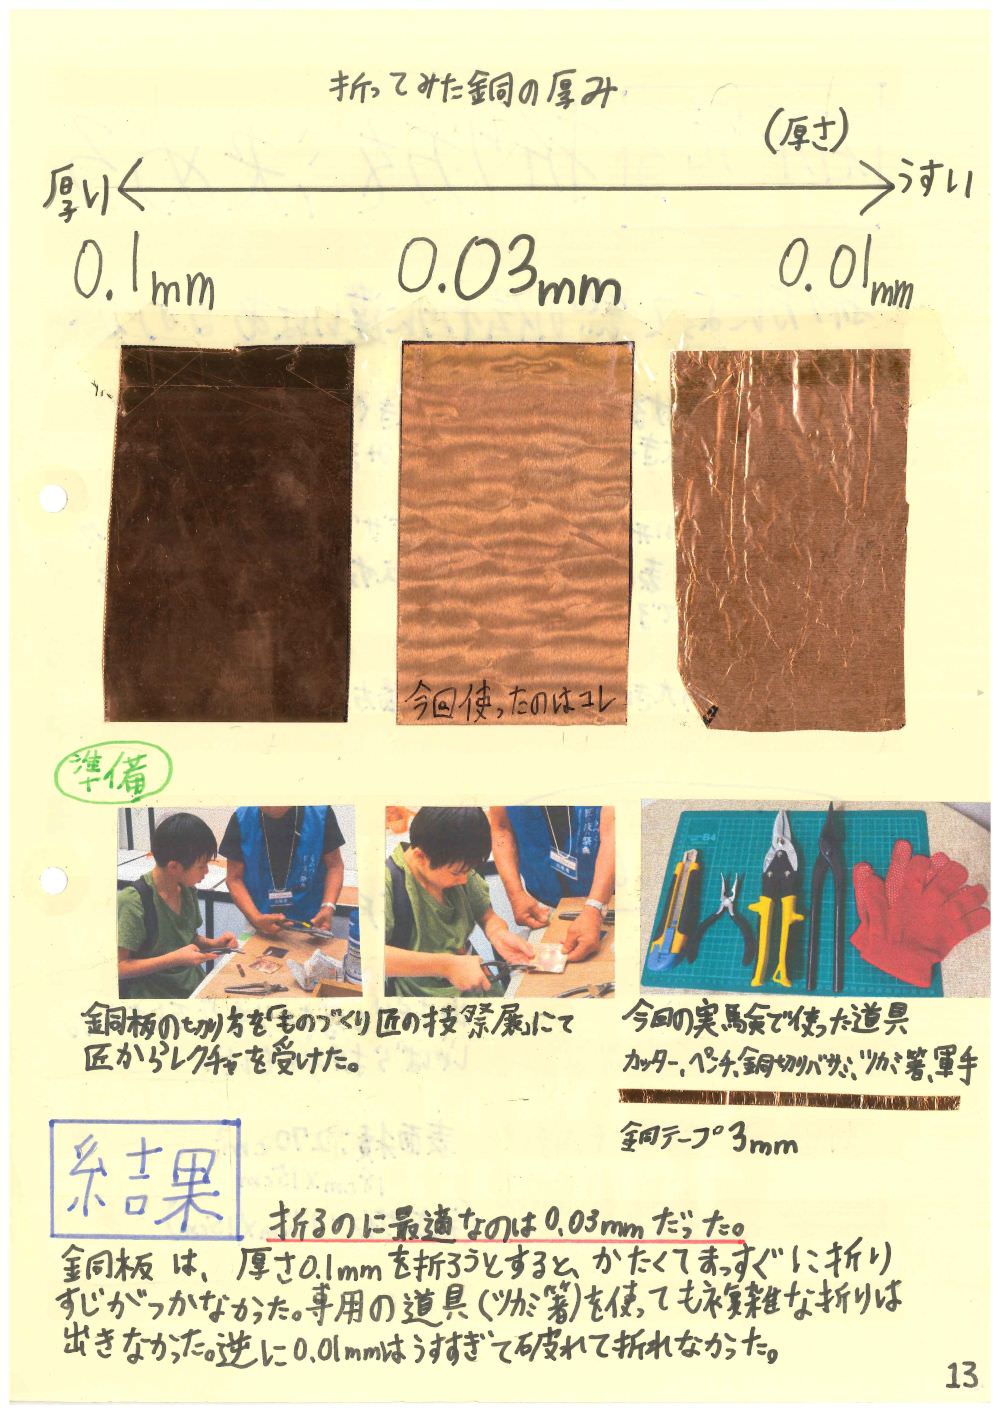 折ってみた銅の厚み
(厚さ)
厚い うすい
0.1mm 0.03mm 0.01mm
今回使ったのはコレ
準備
銅板の切り方を「ものづくり匠の技祭展」にて
匠からレクチャーを受けた。
今回の実験で使った道具
カッター、ペンチ、銅切りバサミ、ツカミ箸、軍手
銅テープ3mm
結果
折るのに最適なのは0.03mmだった。
銅板は、厚さ0.1mmを折ろうとすると、かたくてまっすぐに折り
すじがつかなかった。専用の道具(ツカミ箸)を使っても複雑な折りは
出きなかった。逆に0.01mmはうすすぎて破れて折れなかった。
13